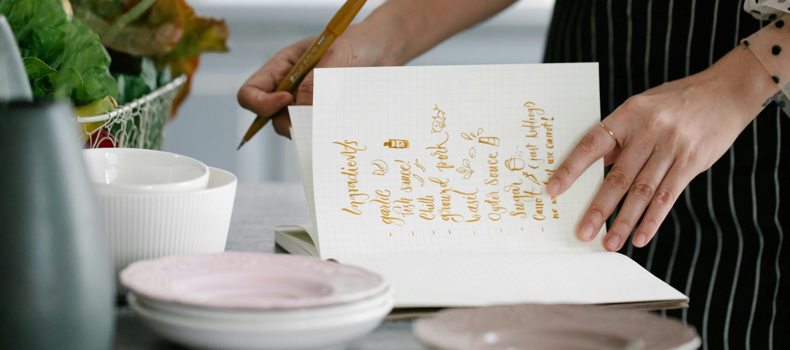 Ingredients
- garlic
- fish sauce
- chilli
- ground pork
- basil
- Oyster Sauce
- Sugar
- Carrot (just kidding)